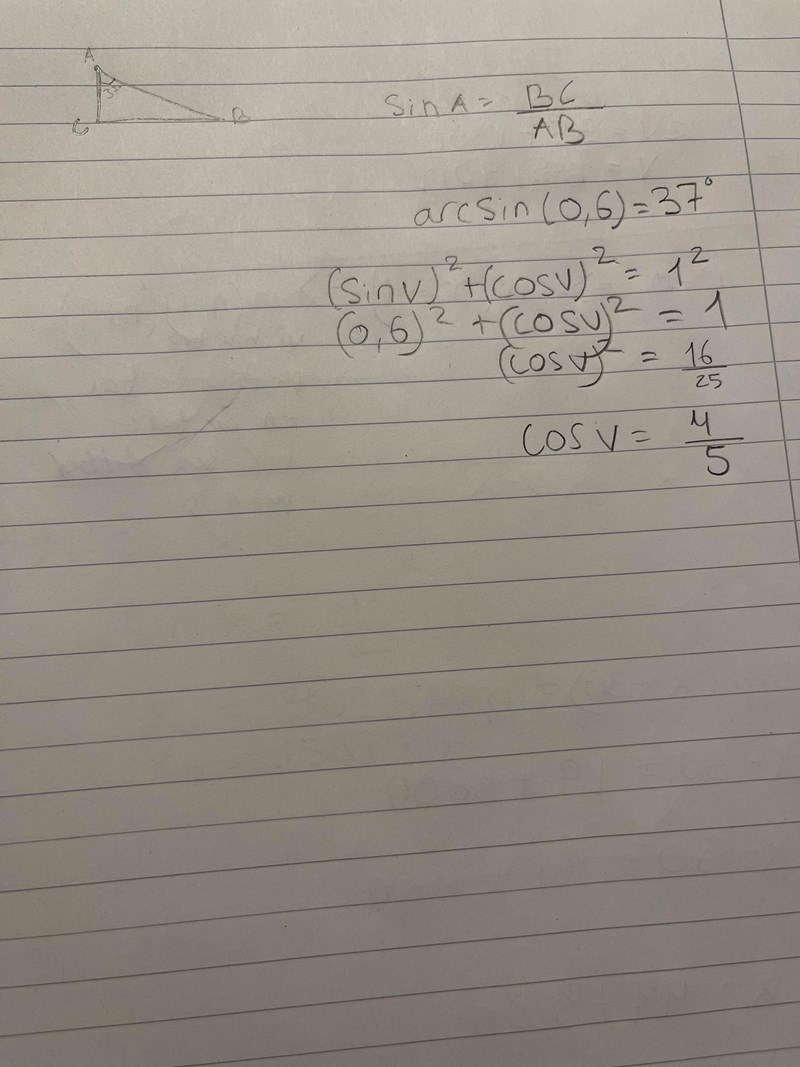 A
C
B
Sin A = BC / AB
arcsin(0,6)=37°
(sinv)² + (cosv)² = 1²
(0,6)² + (cosv)² = 1
(cosv)² = 16/25
cos v = 4/5